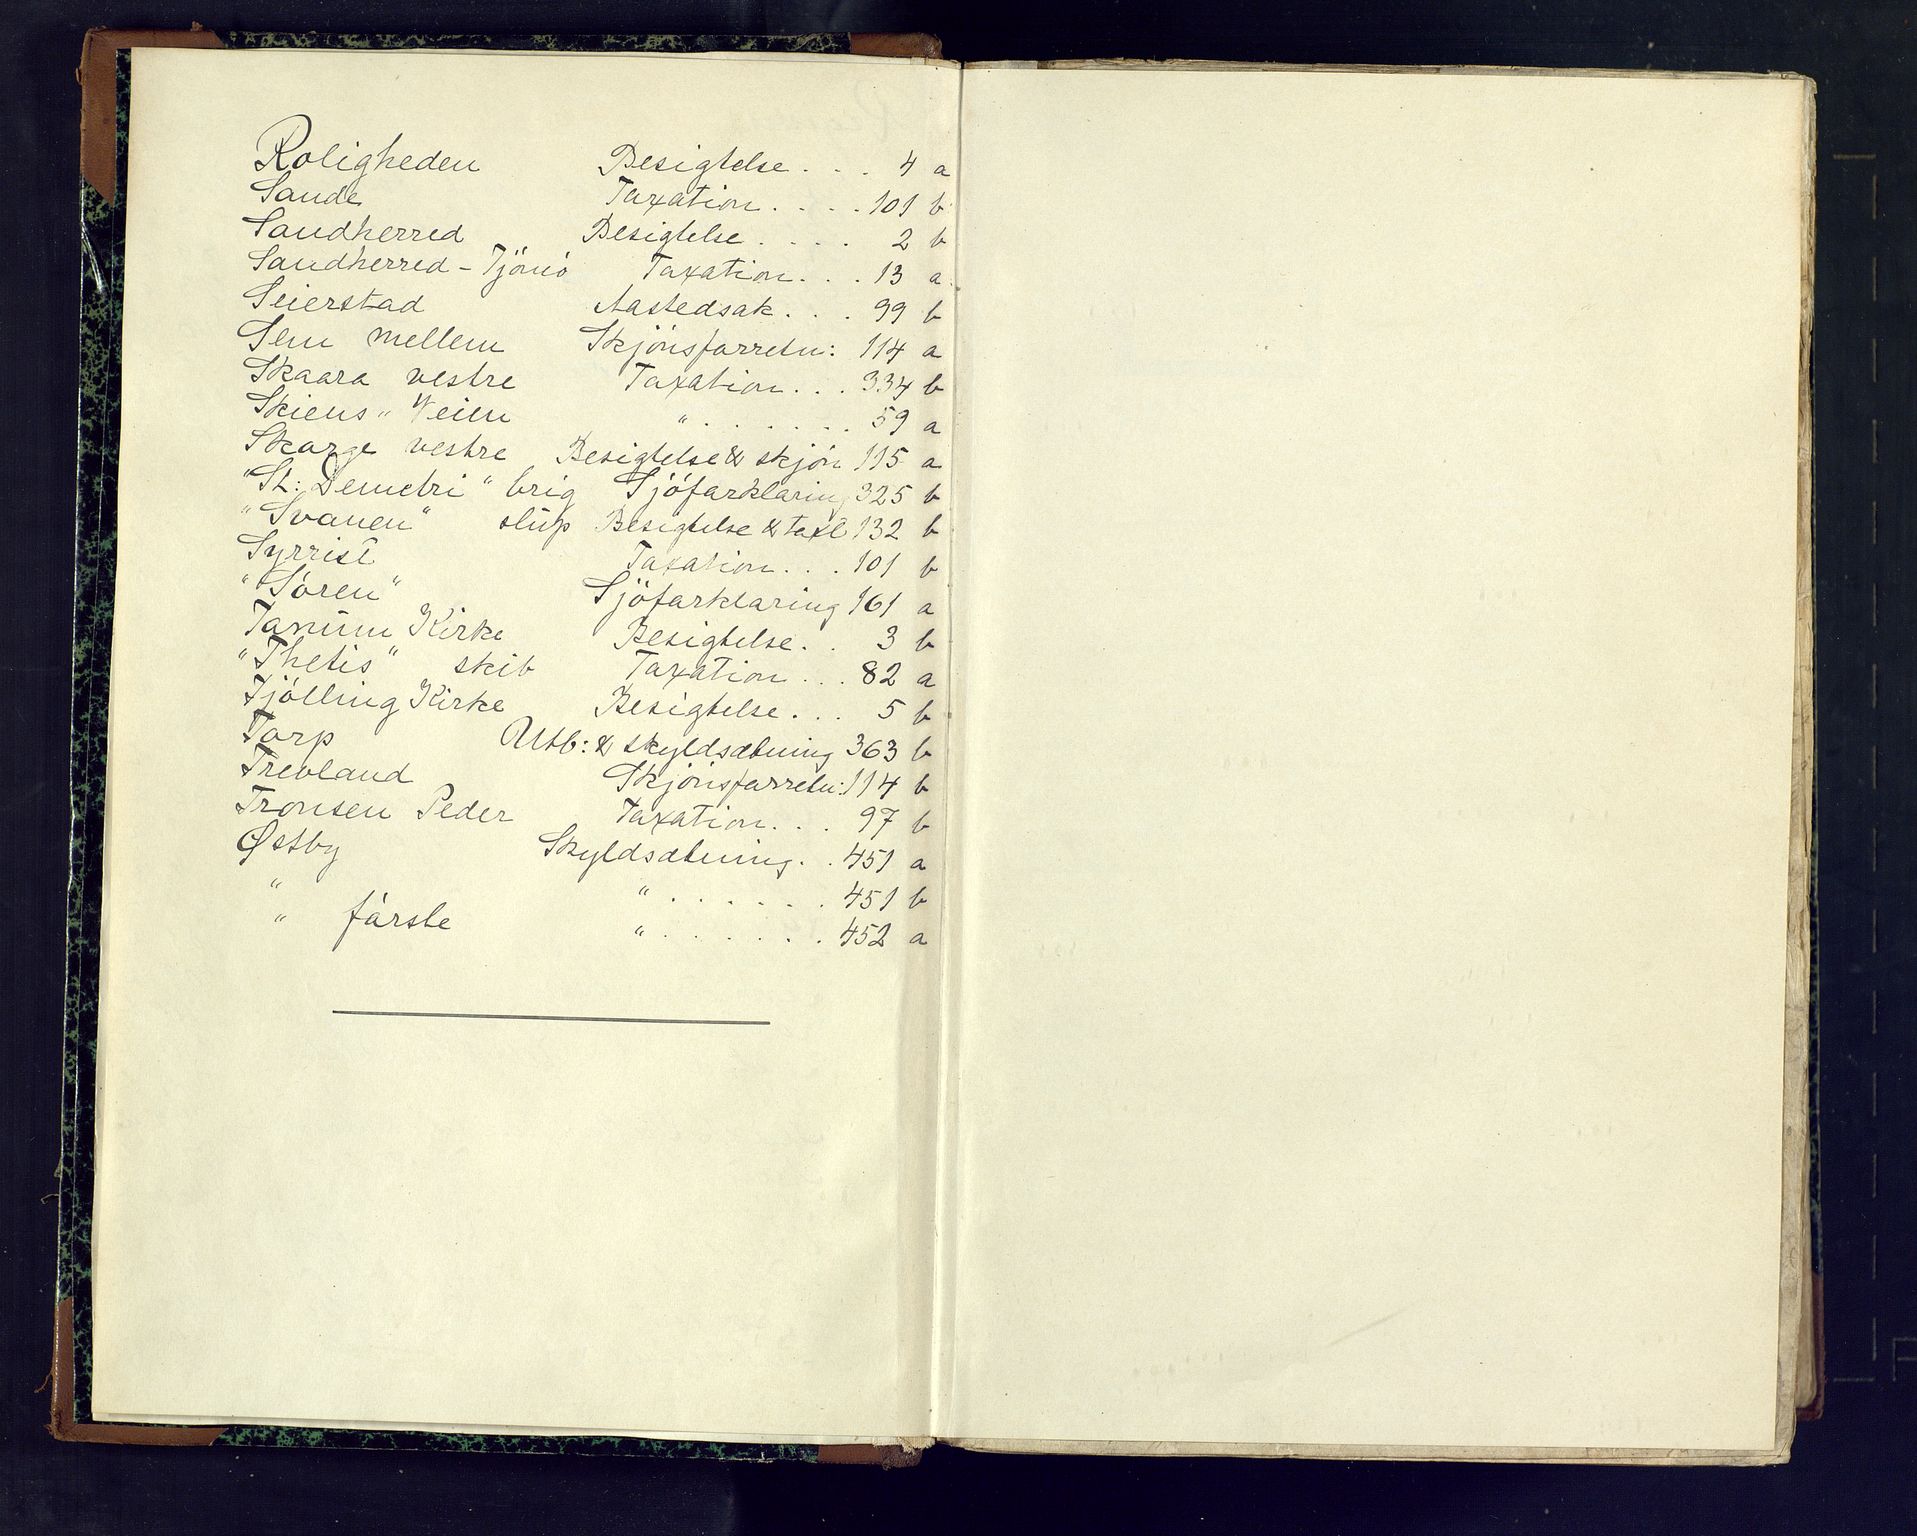 Roligheden Besigtelse . . . 4 a
Sande Taxation . . . . 101 b
Sandherred Besigtelse . . . . 2 b
Sandherred - Tjömö Taxation . . . 13 a
Seierstad Aastedsak . . . 99 b
Sem mellem Skjönsforretn: 114 a
Skaara vestre Taxation . . . 334 b
Skiens " Veien " . . . . . . 59 a
Skorge vestre Besigtelse & skjön 115 a
"St: Demetri" brig Sjöforklaring 325 b
"Svanen" slup Besigtelse & taxt 132 b
Syrrist Taxation . . . 101 b
"Sören" Sjöforklaring 161 a
Tanum Kirke Besigtelse . . 3 b
"Thetis" skib Taxation . . . 82 a
Tjölling Kirke Besigtelse . . . 5 b
Torp Utb: & skyldsætning 363 b
Trevland Skjönsforretn: 114 b
Tronsen Peder Taxation . . . 97 b
Østby Skyldsætning . . 451 a
" " . . . . . . 451 b
" förste " . . . . . . 452 a